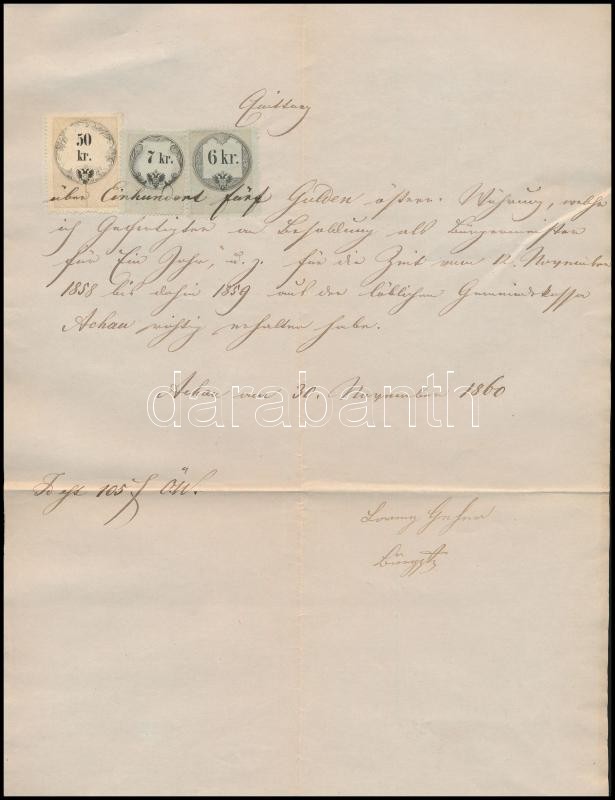 Quittung
50 kr.
7 kr.
6 kr.
über Einhundert fünf Gulden österr: Währung, welche
ich Gefertigter an Besoldung als Bürgermeister
für "Ein Jahr", u. z. für die Zeit vom 12. November
1858 bis dahin 1859 aus der löblichen Gemeindekassa
Achau richtig erhalten habe.
Achau am 30. November 1860
darabanth
105 f ÖW.
Lorenz